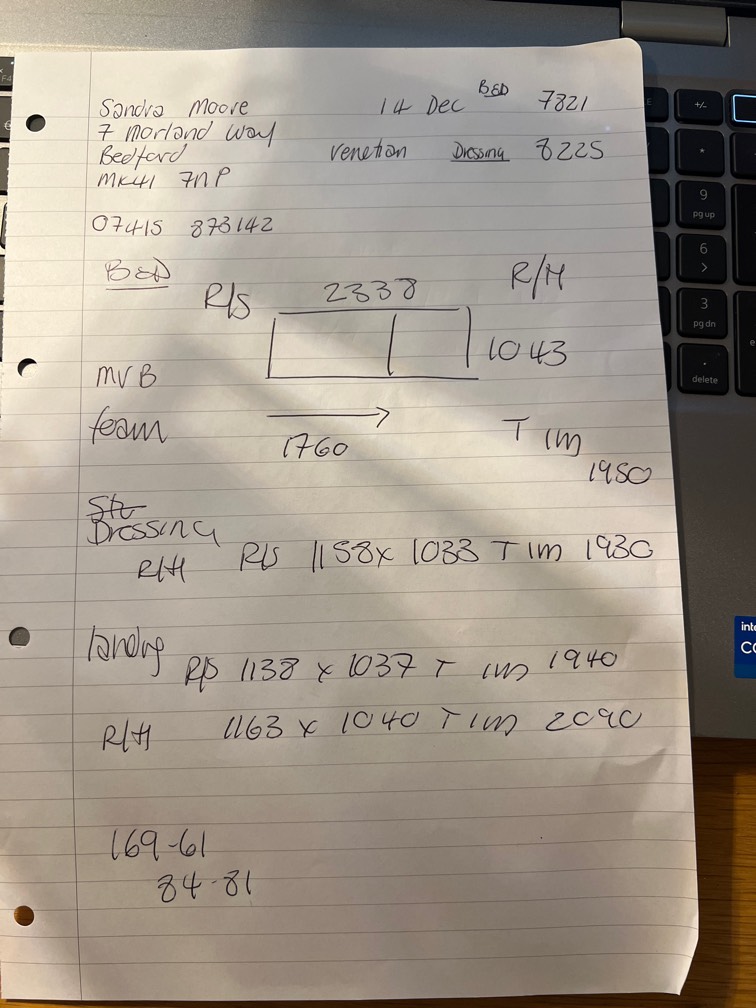 Sandra Moore 14 Dec BED 7821
7 Morland Way
Bedford Venetian Dressing 8225
MK41 7NP
07415 873142
BED R/S 2338 R/H
1043
MVB
team 1760 T 1m
1950
Dressing
R/H R/S 1158 x 1033 T 1m 1930
landing R/S 1138 x 1037 T 1m 1940
R/H 1163 x 1040 T 1m 2090
169-61
84-81
+/-
*
9
pg up
6
>
3
pg dn
.
delete